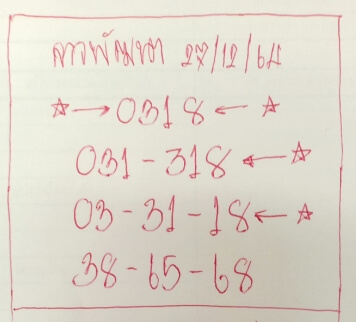 ลาวพัฒนา 27/12/64
☆→0318←☆
031-318←☆
03-31-18←☆
38-65-68